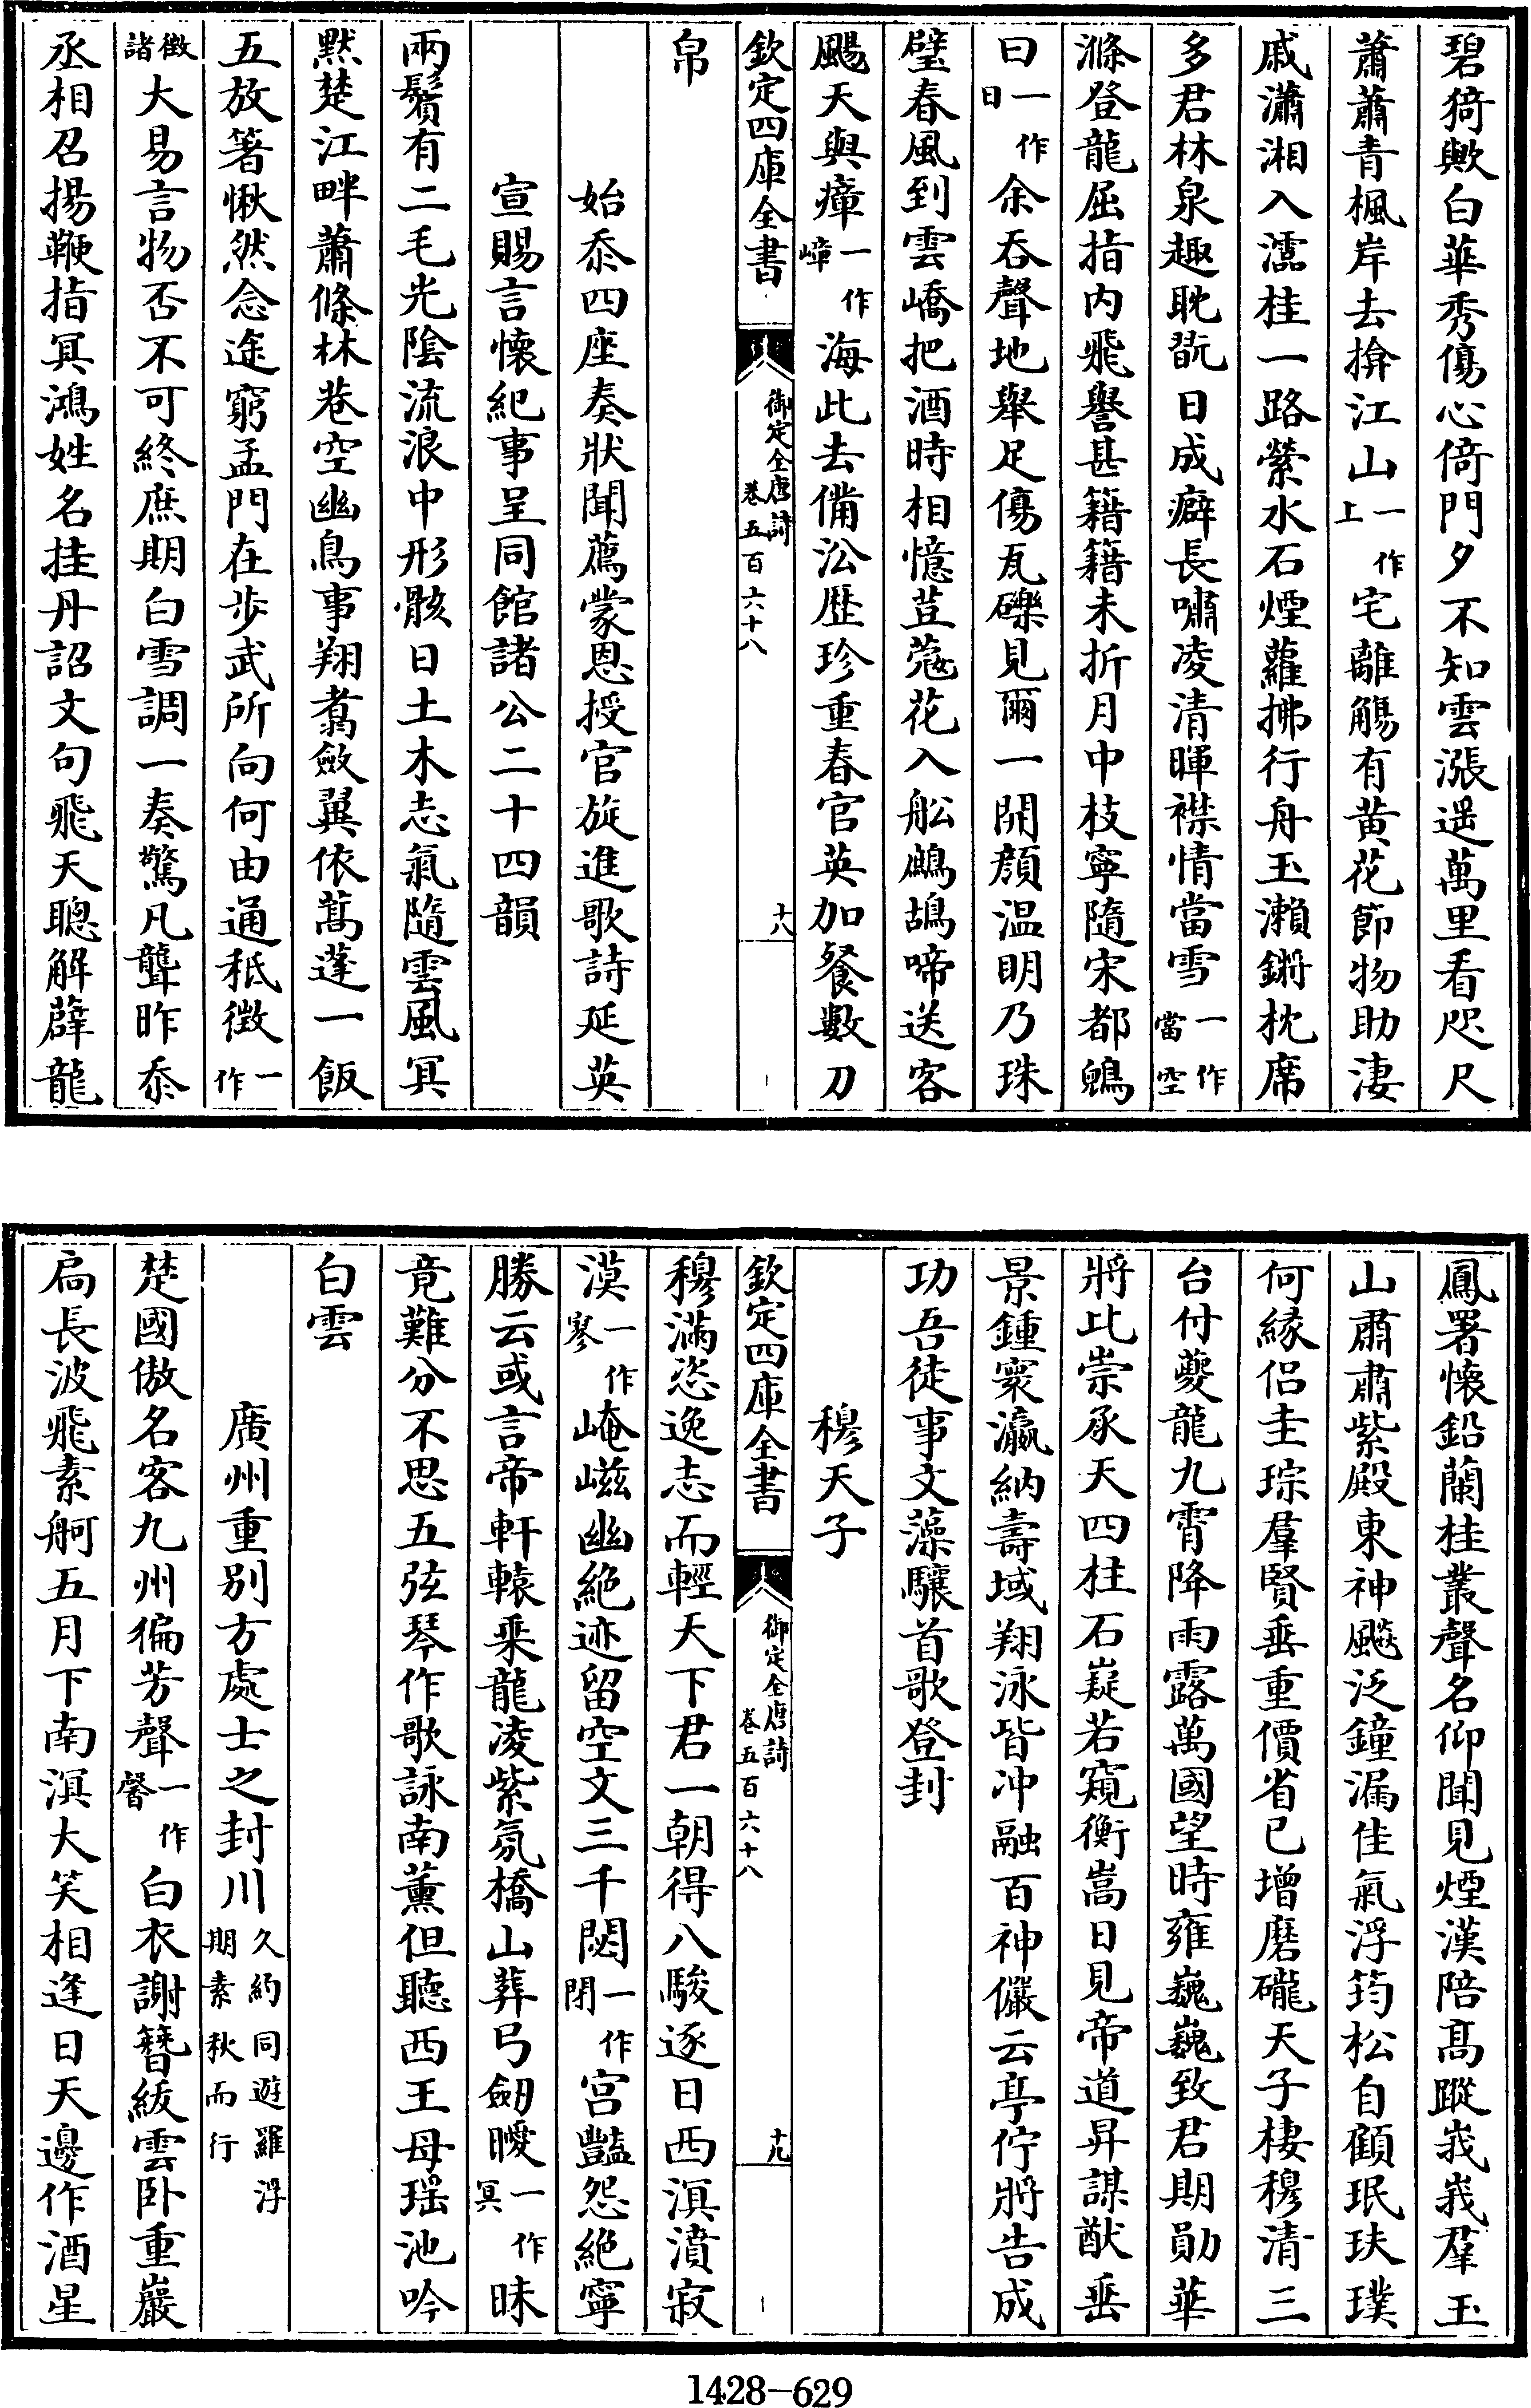 碧猗歟白華秀傷心倚門夕不知雲漲遥萬里看咫尺
蕭蕭青楓岸去揜江山一作上宅離觴有黄花節物助淒
戚瀟湘入澪桂一路縈水石煙蘿拂行舟玉瀨鏘枕席
多君林泉趣耽翫日成癖長嘯凌清暉襟情當雪一作當空
滌登龍屈指内飛譽甚籍籍未折月中枝寧隨宋都鶂
曰一作日余吞聲地舉足傷瓦礫見爾一開顔温明乃珠
璧春風到雲嶠把酒時相憶荳蔻花入船鷓鴣啼送客
颺天與瘴一作嶂海此去備沿歴珍重春官英加餐數刀
欽定四庫全書 御定全唐詩 卷五百六十八 十八
帛
始忝四座奏狀聞薦蒙恩授官旋進歌詩延英
宣賜言懷紀事呈同館諸公二十四韻
兩鬢有二毛光陰流浪中形骸日土木志氣隨雲風冥
黙楚江畔蕭條林巷空幽鳥事翔翥斂翼依蒿蓬一飯
五放箸愀然念途窮孟門在步武所向何由通秪徵一作
徵諸大易言物否不可終庶期白雪調一奏驚凡聾昨忝
丞相召揚鞭指冥鴻姓名挂丹詔文句飛天聰解薜龍
鳳署懷鉛蘭桂叢聲名仰聞見煙漢陪高蹤峩峩羣玉
山肅肅紫殿東神飇泛鐘漏佳氣浮筠松自顧珉玞璞
何緣侣圭琮羣賢垂重價省已增磨礲天子棲穆清三
台付夔龍九霄降雨露萬國望時雍巍巍致君期勛華
將比崇承天四柱石嶷若窺衡嵩日見帝道昇謀猷垂
景鍾寰瀛納壽域翔泳皆冲融百神儼云亭佇將告成
功吾徒事文藻驤首歌登封
穆天子
欽定四庫全書 御定全唐詩 卷五百六十八 十九
穆滿恣逸志而輕天下君一朝得八駿逐日西溟濆寂
漠一作寥崦嵫幽絶迹留空文三千閟一作閉宫豔怨絶寧
勝云或言帝軒轅乘龍凌紫氛橋山葬弓劒曖一作冥昧
竟難分不思五弦琴作歌詠南薫但聽西王母瑶池吟
白雲
廣州重别方處士之封川久約同遊羅浮期素秋而行
楚國傲名客九州徧芳聲一作馨白衣謝簪紱雲卧重巖
扃長波飛素舸五月下南溟大笑相逢日天邊作酒星
1428-629